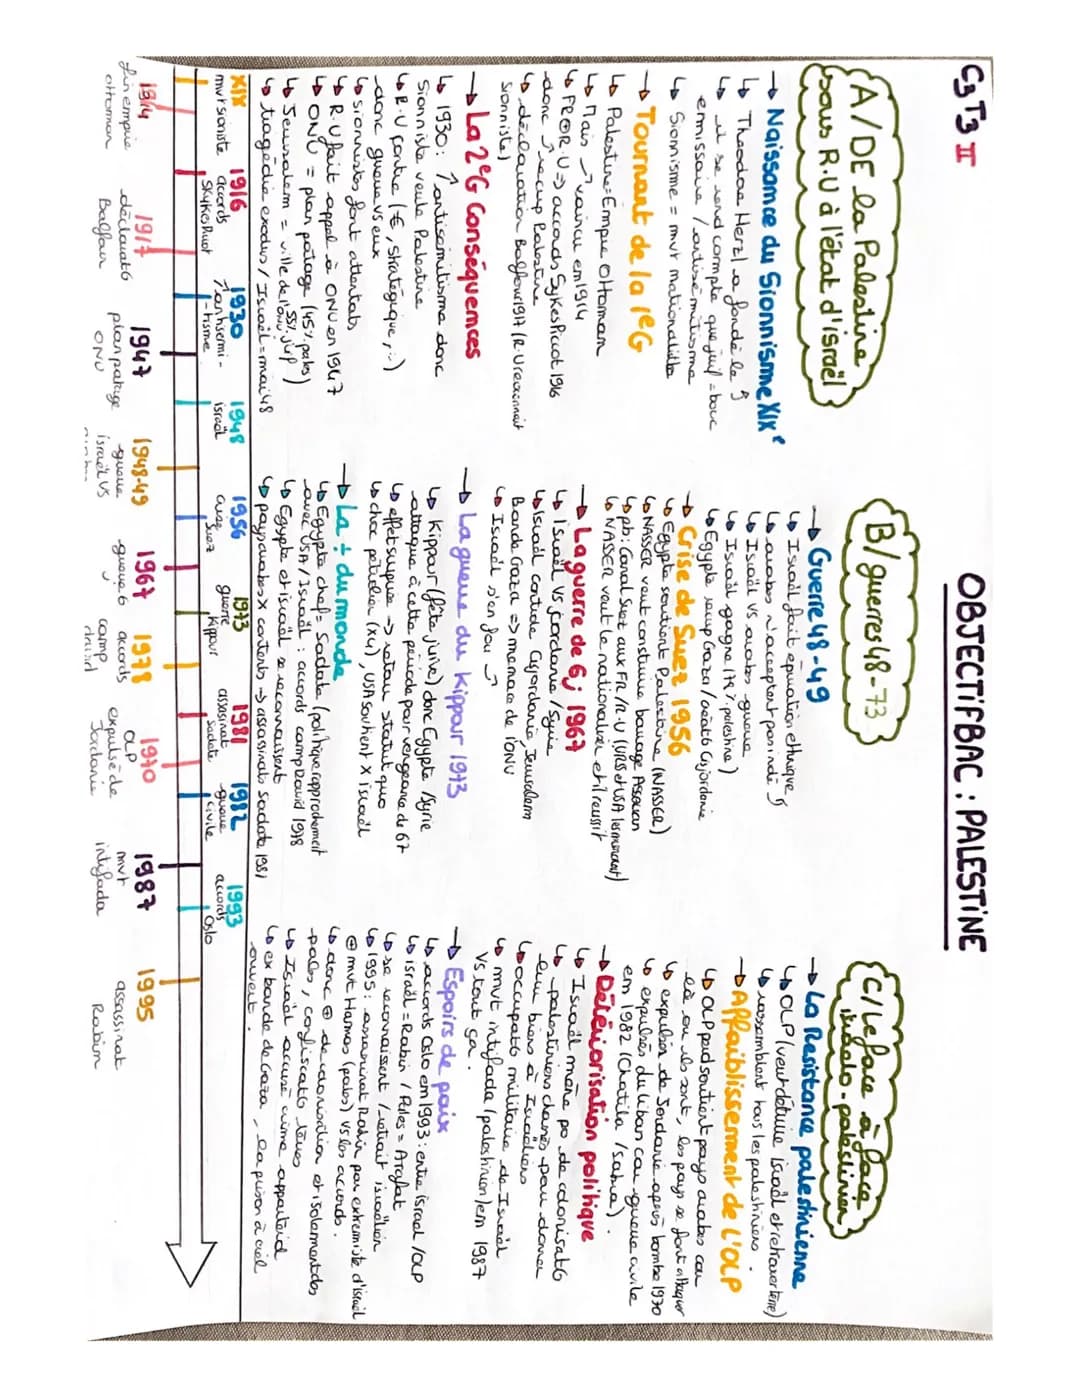 C3T3 I
OBJECTIFBAC : PALESTINE
A/ DE la Palestine
sous R.U à l'état d'israël
→ Naissance du Sionnisme XIXᵉ
↳ Theodore Herzl a fondé le
↳ il se rend compte que juif = bouc
emissaire / antisémitisme
↳ Sionisme = mvt nationaliste
→ Tournant de la 1ᵉG
↳ Palestine = Empire Ottoman
↳ Mais → vaincu em 1914
↳ FR⊕R.U ⇒ accords Sykes Picot 1916
donc recup Palestine
↳ déclaration Balfour 1917 (R.U reconnait
sioniste)
→ La 2ᵉG Conséquences
↳ 1930 : ↑ antisemitisme donc
Sionniste veule Palestine
↳ R.U contre (€, stratégique, ...)
donc guerre VS eux
↳ sionnistes font attentats
↳ R.U fait appel à ONU en 1947
↳ ONU = plan partage (45% pales)
↳ Jerusalem = ville de l'ONU 55% juif)
↳ tragédie exodus / Israël = mai 48
B/ guerres 48-73
→ Guerre 48-49
↳ Israël fait épuration éthnique
↳ arabes n'acceptent pas indé.
↳ Israël VS arabes guerre
↳ Israël gagne (% palestine)
↳ Egypte recup Gaza / Cisjordanie
→ Crise de Suez 1956
↳ Egypte soutient Palestine (NASSER)
↳ NASSER veut construire barrage Assouan
↳ pb : Canal Suez aux FR/R.U (URSS et USA les menacent)
↳ NASSER veut le nationaliser et il reussit
→ La guerre de 6j 1967
↳ Israël VS Jordanie / Syrie
↳ Israël controle Cisjordanie, Jerusalem
Bande Gaza ⇒ menace de l'ONU
↳ Israël s'en fou
→ La guerre du Kippour 1973
↳ Kippour (fête juive) donc Egypte / Syrie
attaque à cette période par vengeance de 67
↳ effet surprise → retour statut quo
↳ choc pétrolier (x4), USA soutient X israël
→ La ÷ du monde
↳ Egypte chef = Sadate (politique rapprochement
avec USA / Israël : accords camp David 1978
↳ Egypte et israël se reconnaissent
↳ pays arabes X contents → assassinat Sadate 1981
C/ Le face à face
israélo-palestinien
→ La Resistance palestinienne
↳ OLP (veut détruire Israël et retrouver terre)
↳ rassemblent tous les palestiniens.
→ Affaiblissement de l'OLP
↳ OLP perd soutient pays arabes car
là où ils sont, les pays se font attaquer
↳ expulsion de Jordanie après bombe 1970
↳ expulsés du liban car guerre civile
en 1982 (Chatila / Sabra).
→ Détériorisation politique
↳ Israël mène po de colonisatᵒ
↳ palestiniens chassés pour donner
leur biens à Israéliens
↳ occupatᵒ militaire de Israël
↳ mvt intifada (palestinien) em 1987
VS tout ça.
→ Espoirs de paix
↳ accords Oslo em 1993 : entre israël / OLP
↳ israël = Rabin / Pales = Arafat
↳ se reconnaissent / retrait israëlien
↳ 1995 : assassinat Rabin par extremiste d'israël
⊕ mvt Hamas (pales) VS les accords.
↳ donc ⊕ de colonisation et isolement des
pales, confiscatᵒ terres
↳ Israël accusé crime apparteid
↳ ex bande de Gaza, la prison à ciel
ouvert.
XIX
mvt sioniste
1916
accords
Sykes Picot
1930
↗ antisemi-
tisme
1948
israël
1956
crise
Suez
1973
guerre
Kippour
1981
assasinat
Sadate
1982
guerre
civile
1993
accords
Oslo
1914
fin empire
ottoman
1917
déclaratᵒ
Balfour
1947
plan partage
ONU
1948-49
guerre
israël VS
1967
guerre 6
j
1978
accords
camp
1970
OLP
expulsé de
Jordanie
1987
mvt
intifada
1995
assassinat
Rabin